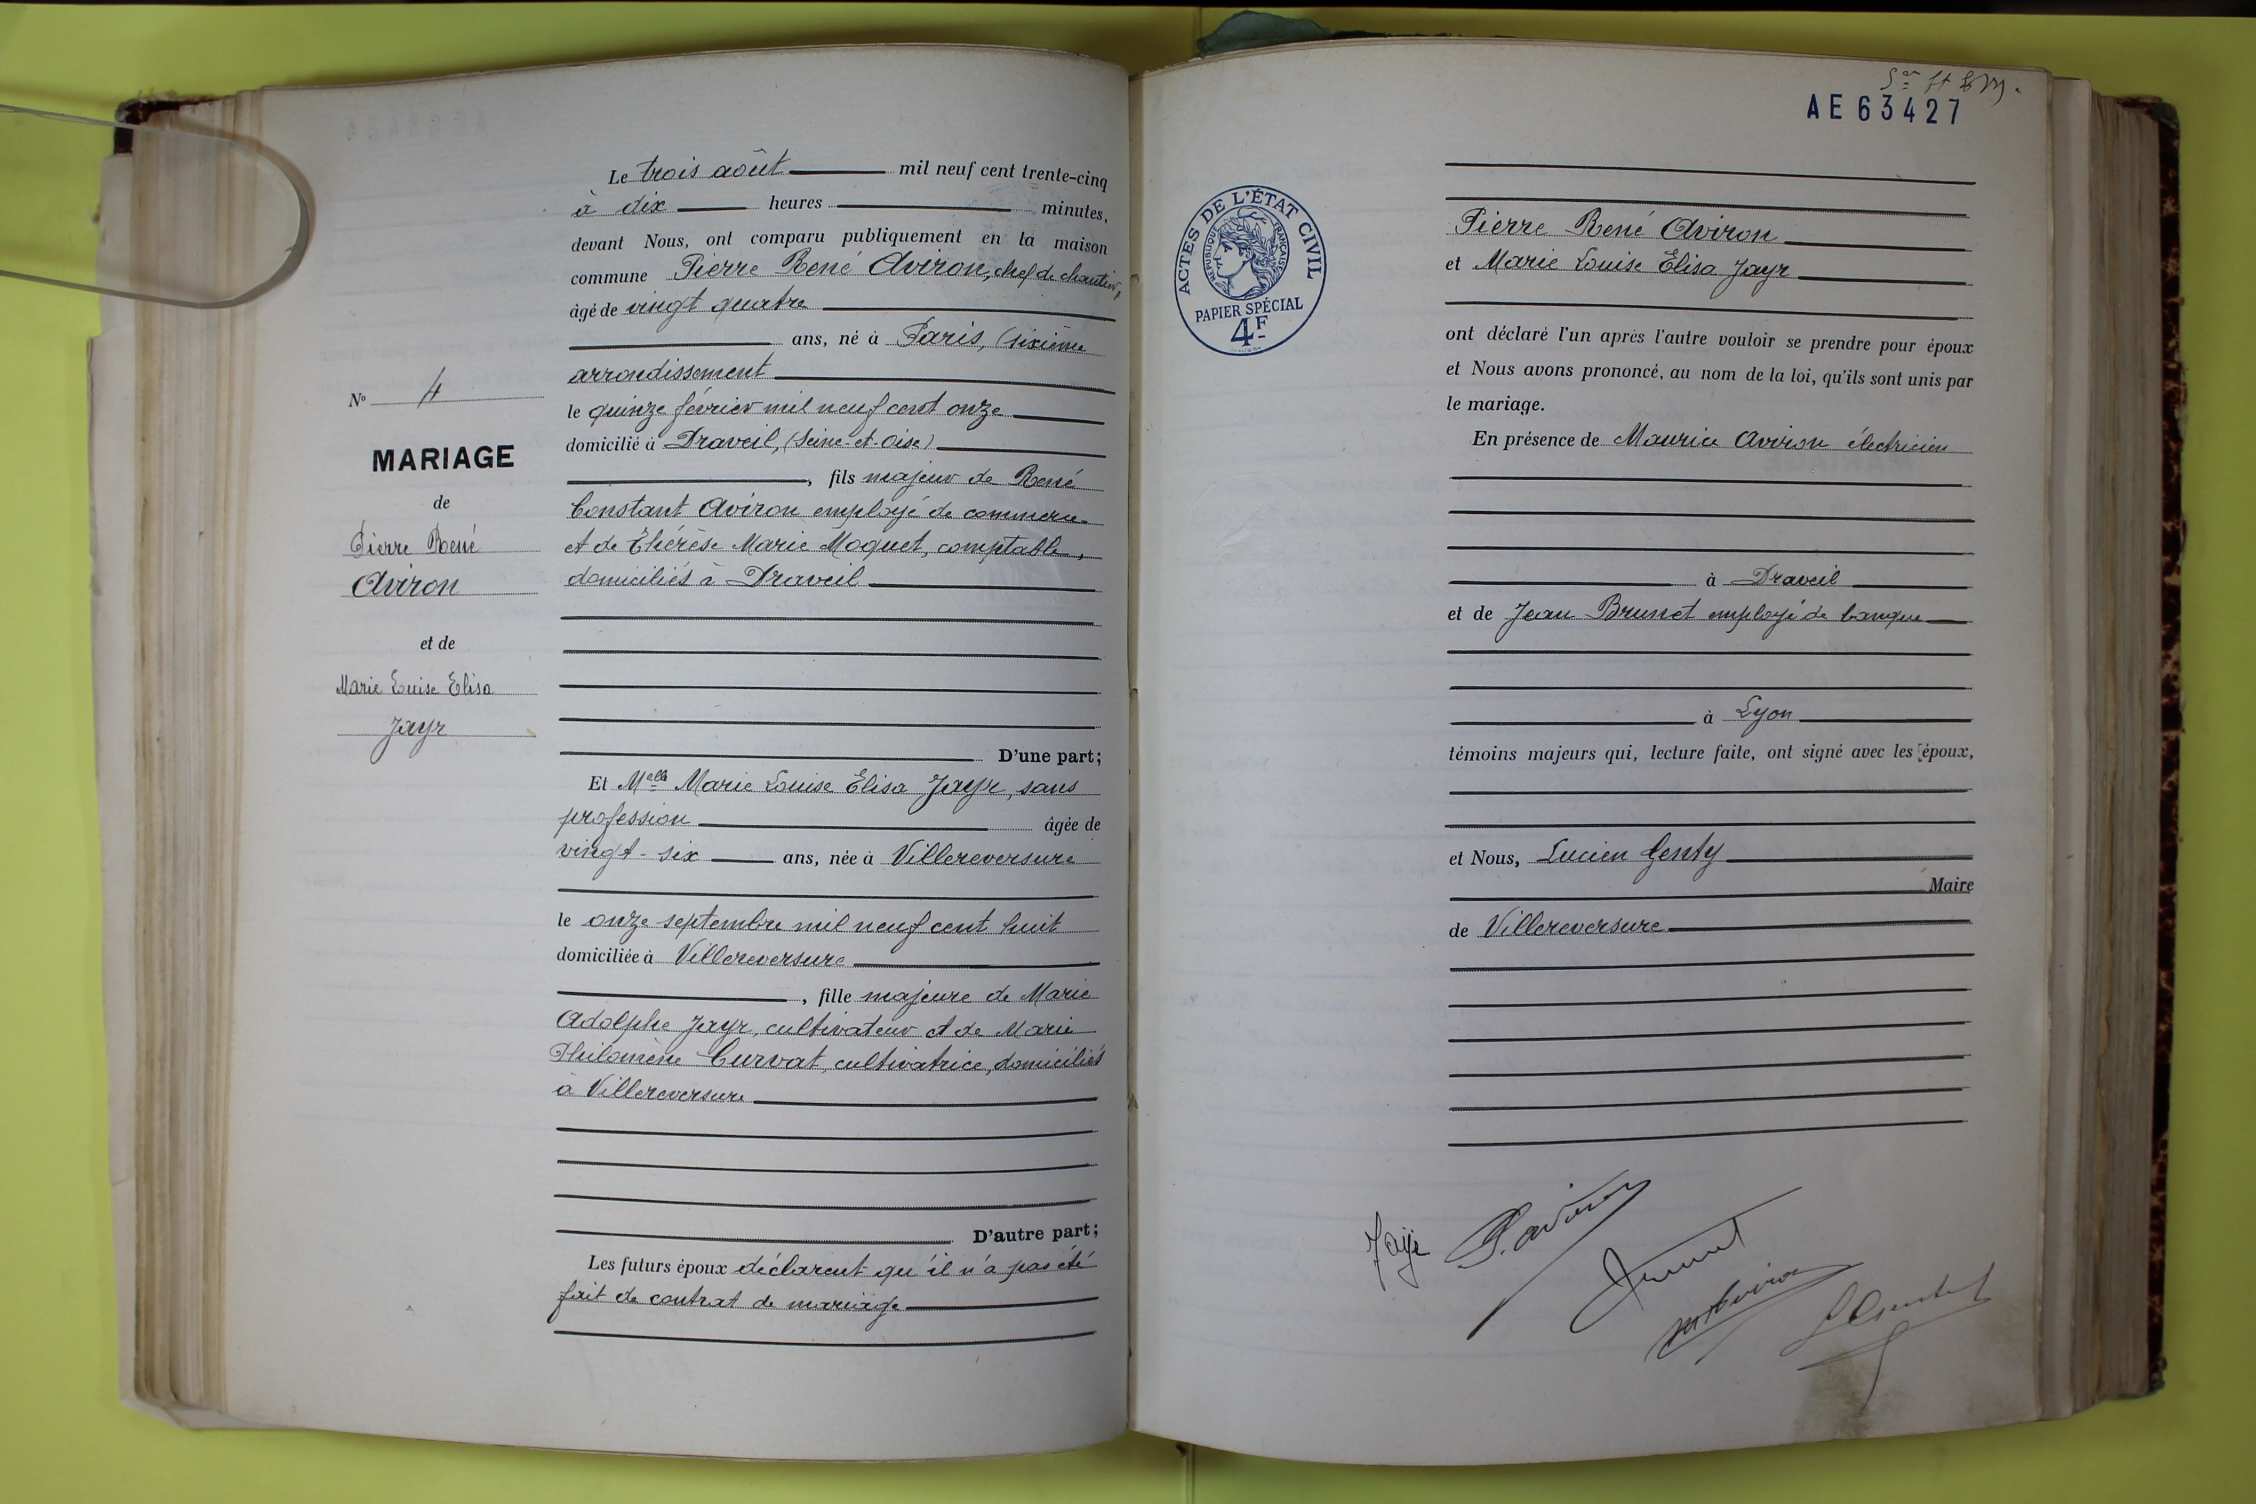 Le trois août mil neuf cent trente-cinq
à dix heures minutes,
devant Nous, ont comparu publiquement en la maison
commune Pierre René Aviron, chef de chantier,
âgé de vingt quatre
ans, né à Paris, (sixième
arrondissement
le quinze février mil neuf cent onze
domicilié à Draveil, (Seine-et-Oise)
, fils majeur de René
Constant Aviron employé de commerce
et de Thérèse Marie Moquet, comptable,
domiciliés à Draveil
D'une part;
Et Melle Marie Louise Elisa Jayr, sans
profession âgée de
vingt-six ans, née à Villereversure
le onze septembre mil neuf cent huit
domiciliée à Villereversure
, fille majeure de Marie
Adolphe Jayr, cultivateur et de Marie
Philomène Curvat, cultivatrice, domiciliés
à Villereversure
D'autre part;
Les futurs époux déclarent qu'il n'a pas été
fait de contrat de mariage
No 4
MARIAGE
de
Pierre René
Aviron
et de
Marie Louise Elisa
Jayr
AE63427
ACTES DE L'ÉTAT CIVIL
RÉPUBLIQUE FRANÇAISE
PAPIER SPÉCIAL
4F
Pierre René Aviron
et Marie Louise Elisa Jayr
ont déclaré l'un après l'autre vouloir se prendre pour époux
et Nous avons prononcé, au nom de la loi, qu'ils sont unis par
le mariage.
En présence de Maurice Aviron électricien
à Draveil
et de Jean Brunet employé de banque
à Lyon
témoins majeurs qui, lecture faite, ont signé avec les époux,
et Nous, Lucien Genty
Maire
de Villereversure
Jayr P. Aviron
Brunet
M Aviron